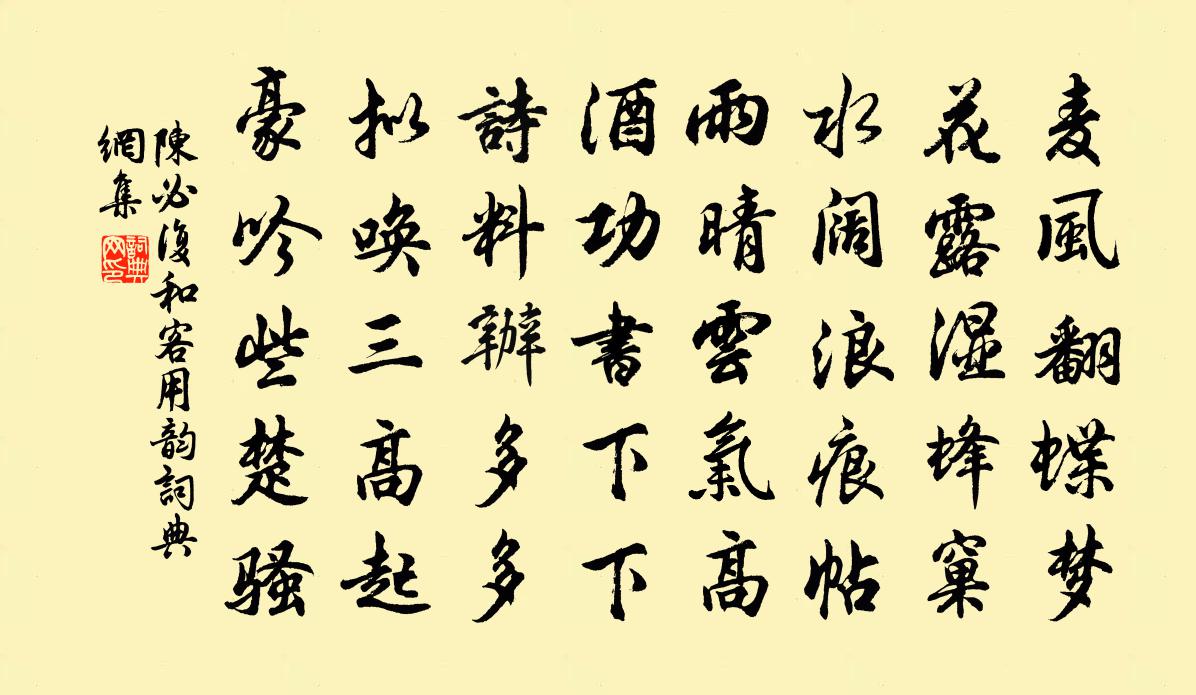 麦風翻蝶梦
花露濕蜂窠
水阔浪痕帖
雨晴雲氣高
酒功書下下
詩料辦多多
拟唤三高起
豪吟些楚骚
陳必復和客用韵詞典
網集
詞典
网印